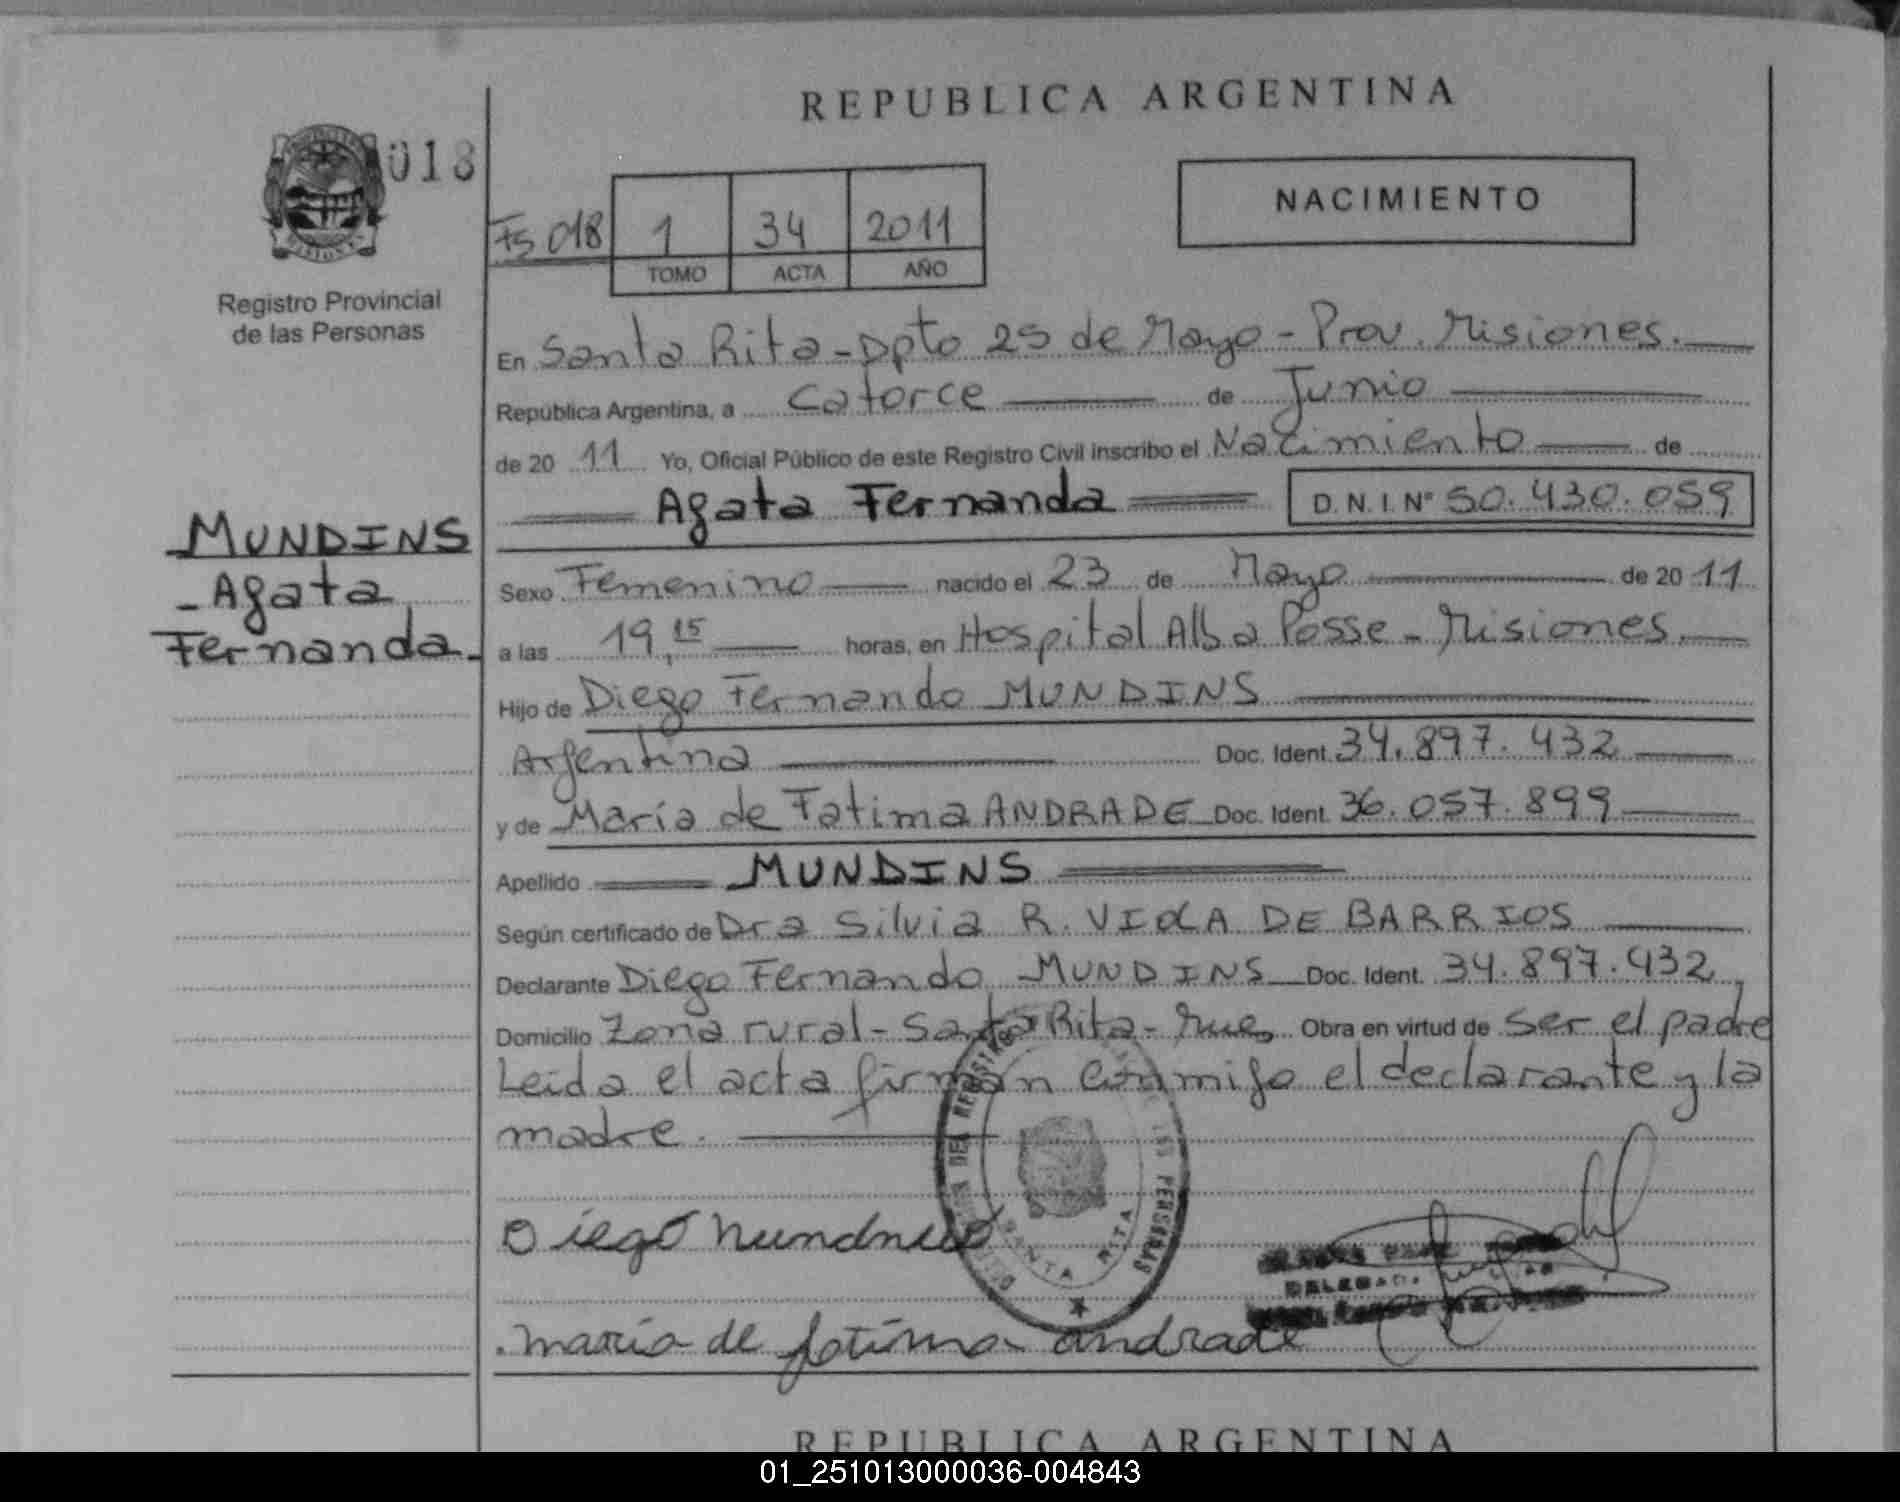 REPUBLICA ARGENTINA
018
NACIMIENTO
Fs 018 1 34 2011
TOMO ACTA AÑO
Registro Provincial
de las Personas
En Santa Rita - Dpto 25 de Mayo - Prov. Misiones.
República Argentina, a Catorce de Junio
de 20 11 Yo, Oficial Público de este Registro Civil inscribo el Nacimiento de
Agata Fernanda D.N.I. Nº 50.430.059
MUNDINS
- Agata
Fernanda.
Sexo Femenino nacido el 23 de Mayo de 20 11
a las 19,15 horas, en Hospital Alba Posse - Misiones.
Hijo de Diego Fernando MUNDINS
Argentina Doc. Ident. 34.897.432
y de María de Fatima ANDRADE Doc. Ident. 36.057.899
Apellido MUNDINS
Según certificado de Dra Silvia R. VIOLA DE BARRIOS
Declarante Diego Fernando MUNDINS Doc. Ident. 34.897.432,
Domicilio Zona rural - Santa Rita - Obra en virtud de ser el padre
Leida el acta firman conmigo el declarante y la
madre.
SANTA RITA
LAS PERSONAS
Diego
maria de fatima andrade
REPUBLICA ARGENTINA
01_251013000036-004843